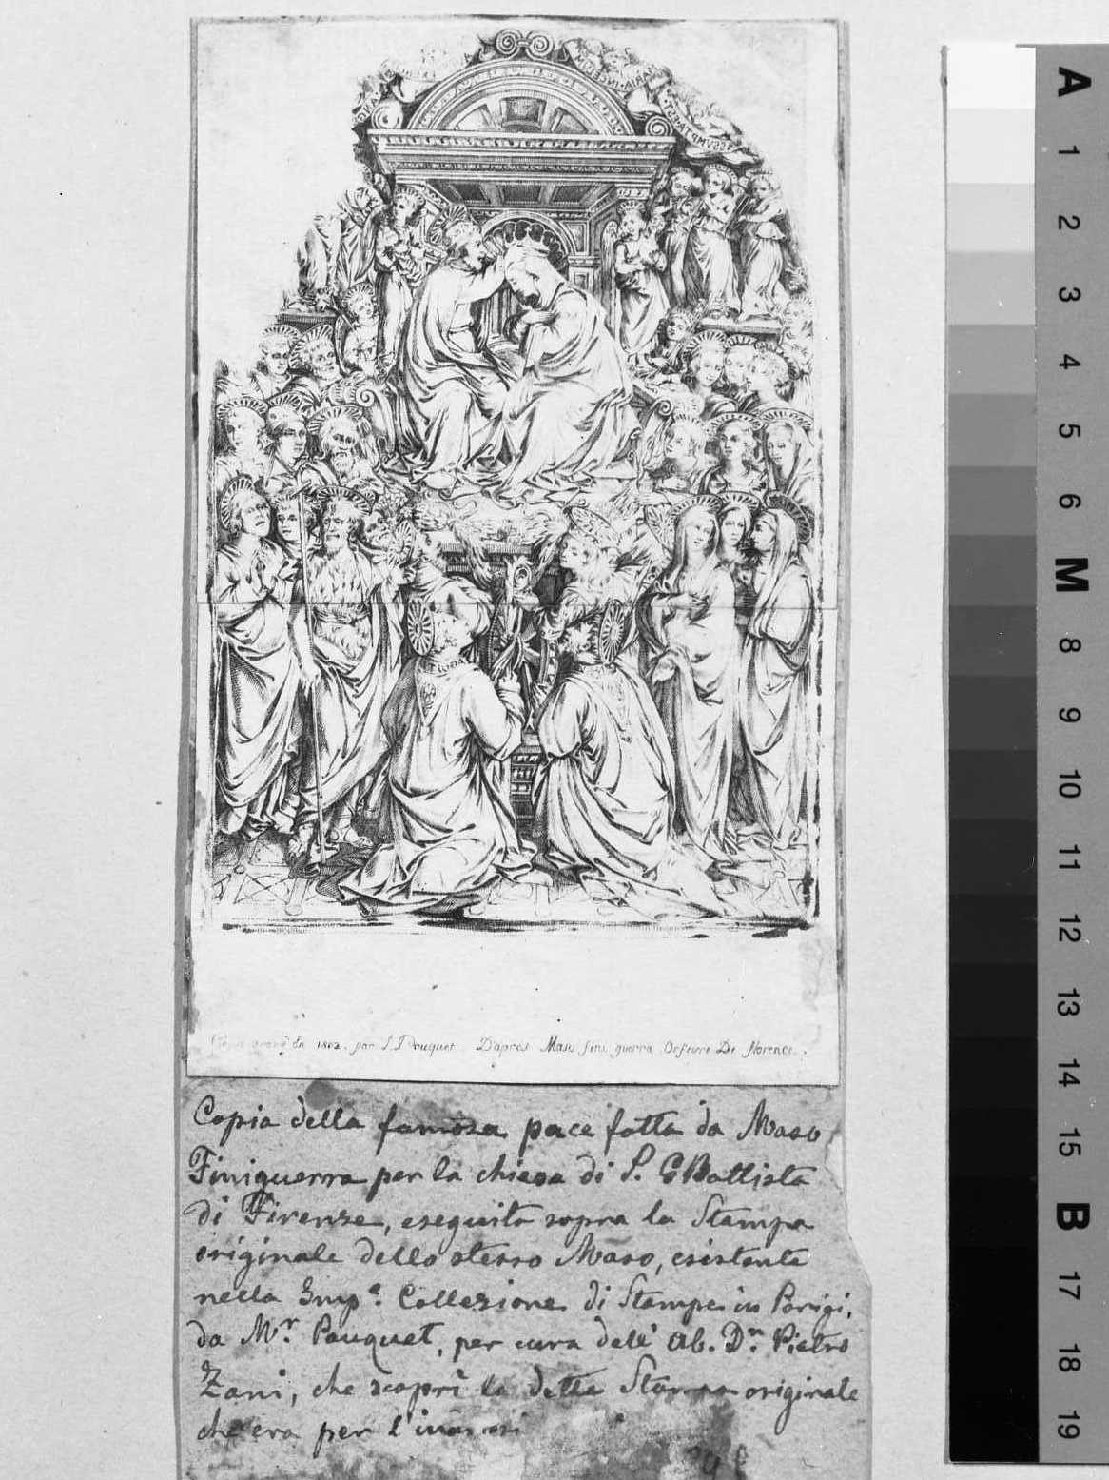 gravé en 1802. par L. J. Pauquet D'apres Maso fini guerra Orfevre De florence.
Copia della famosa pace fatta da Maso
Finiguerra per la chiesa di S. G Battista
di Firenze, eseguita sopra la Stampa
originale dello stesso Maso, esistente
nella Imp.e Collezione di Stampe in Parigi,
da M.r Pauquet, per cura dell' Ab. D.n Pietro
Zani, che scoprì la detta Stampa originale
che era per l'
A
1
2
3
4
5
6
M
8
9
10
11
12
13
14
15
B
17
18
19